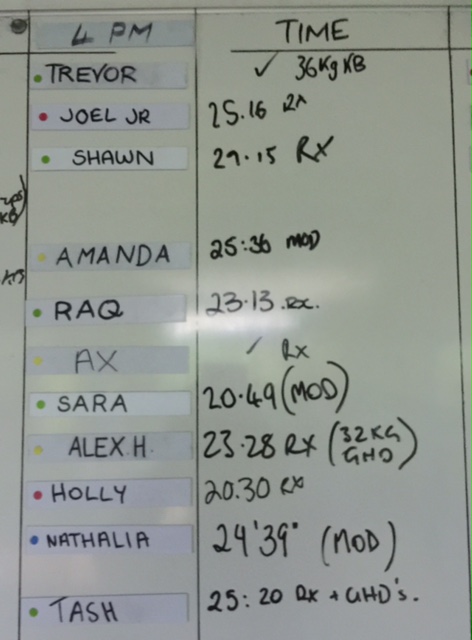 4 PM TIME
TREVOR ✓ 36Kg KB
JOEL JR 25.16 RX
SHAWN 29.15 RX
AMANDA 25:36 MOD
RAQ 23.13 RX.
AX ✓ RX
SARA 20.49 (MOD)
ALEX.H. 23.28 RX (32KG GHD)
HOLLY 20.30 RX
NATHALIA 24'39" (MOD)
TASH 25:20 RX + GHD's.
KB)